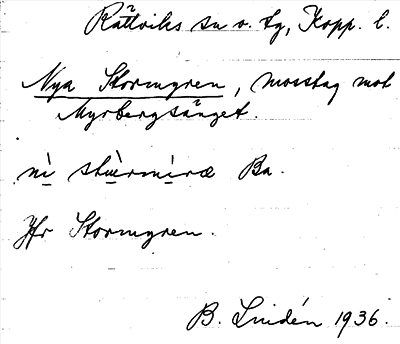 Rättviks sn o. tg, Kopp. l.
Nya Stormyren, mosstag mot
Myrbergsänget.
nì stùrmiræ Ba.
Jfr Stormyren.
B. Lindén 1936.